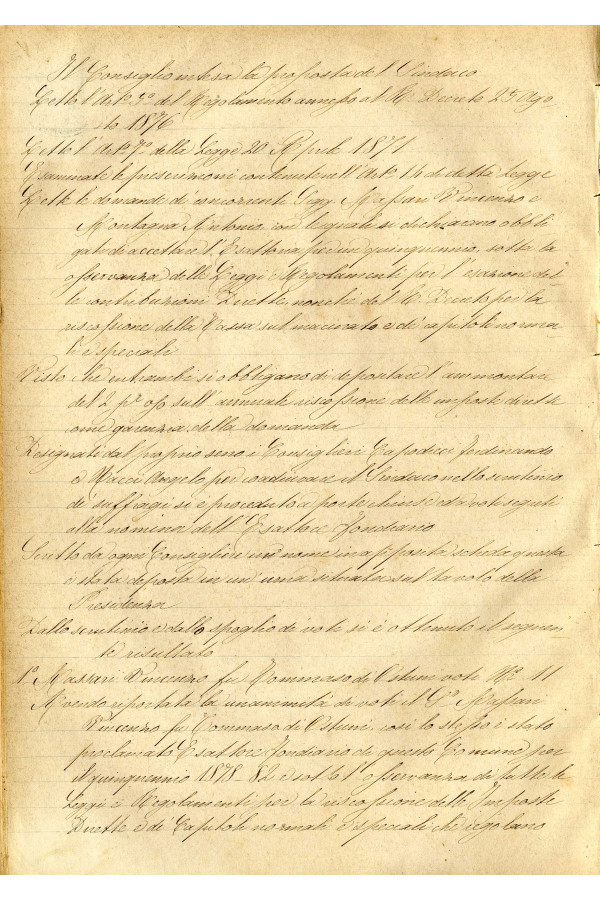 Il Consiglio intesa la proposta del Sindaco
Letto l'Art.º 3º del Regolamento annesso al R. Decreto 25 Ago-
sto 1876
Letto l'Art.º 7º della Legge 20 Aprile 1871
Esaminate le prescrizioni contenute nell'Art.º 14 di detta Legge
Lette le domande di concorrenti Sigg. Massari Vincenzo e
Montagna Antonio, con le quali si dichiarano obbli
gati di accettare l'Esattoria per un quinquennio, sotto la
osservanza delle Leggi e Regolamenti per l'esazione del-
le contribuzioni Dirette, nonchè del R. Decreto per la
riscossione della Tassa sul macinato e di capitoli norma-
li e speciali
Visto che entrambi si obbligano di depositare l'ammontare
del 2 p% o/o sull'annuale riscossione delle imposte dirette
come garenzia della domanda
Designati dal proprio seno i Consiglieri Capodieci Ferdinando
e Bacci Angelo per coadiuvare il Sindaco nello scrutinio
de' suffragi si è proceduto a porte chiuse ed a voti segreti
alla nomina dell'Esattore Fondiario
Scritto da ogni Consigliere un nome in apposita scheda questa
è stata deposta in un'urna situata sul tavolo della
Presidenza
Dallo scrutinio e dallo spoglio de' voti si è ottenuto il seguen-
te risultato
1º Massari Vincenzo fu Tommaso di Ostuni voti Nº 11
Avendo riportata la unanimità di voti il Sº Massari
Vincenzo fu Tommaso di Ostuni, così lo stesso è stato
proclamato Esattore Fondiario di questo Comune per
il quinquennio 1878-82 e sotto l'osservanza di tutte le
Leggi e Regolamenti per la riscossione delle Imposte
Dirette e di Capitoli normali e speciali che regolano